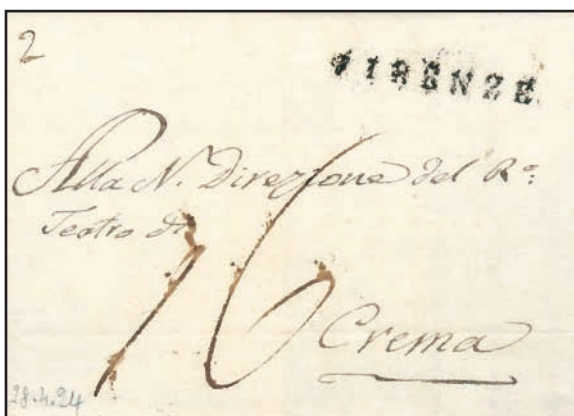 2
FIRENZE
Alla N. Direzione del R.º
Teatro di
16
Crema
28.4.24